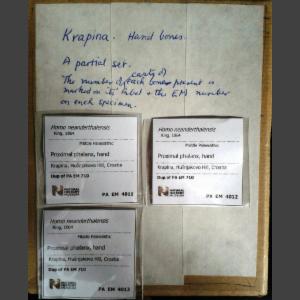 Krapina. Hand bones.
A partial set.
casts of
The number of each bone present is
marked on its label & the EM number
on each specimen.
Homo neanderthalensis
King, 1864
Middle Palaeolithic
Proximal phalanx, hand
Krapina, Hušnjakovo Hill, Croatia
Dup of PA EM 710
NATURAL
HISTORY
MUSEUM
PA EM 4011
Homo neanderthalensis
King, 1864
Middle Palaeolithic
Proximal phalanx, hand
Krapina, Hušnjakovo Hill, Croatia
Dup of PA EM 710
NATURAL
HISTORY
MUSEUM
PA EM 4012
Homo neanderthalensis
King, 1864
Middle Palaeolithic
Proximal phalanx, hand
Krapina, Hušnjakovo Hill, Croatia
Dup of PA EM 710
NATURAL
HISTORY
MUSEUM
PA EM 4013